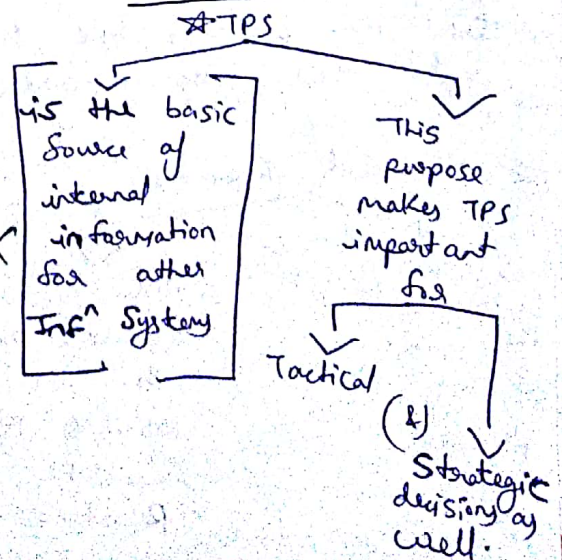 ☆ TPS
is the basic
source of
internal
information
for other
Inf^n Systems
This
purpose
makes TPS
important
for
Tactical
(&)
Strategic
decisions as
well.